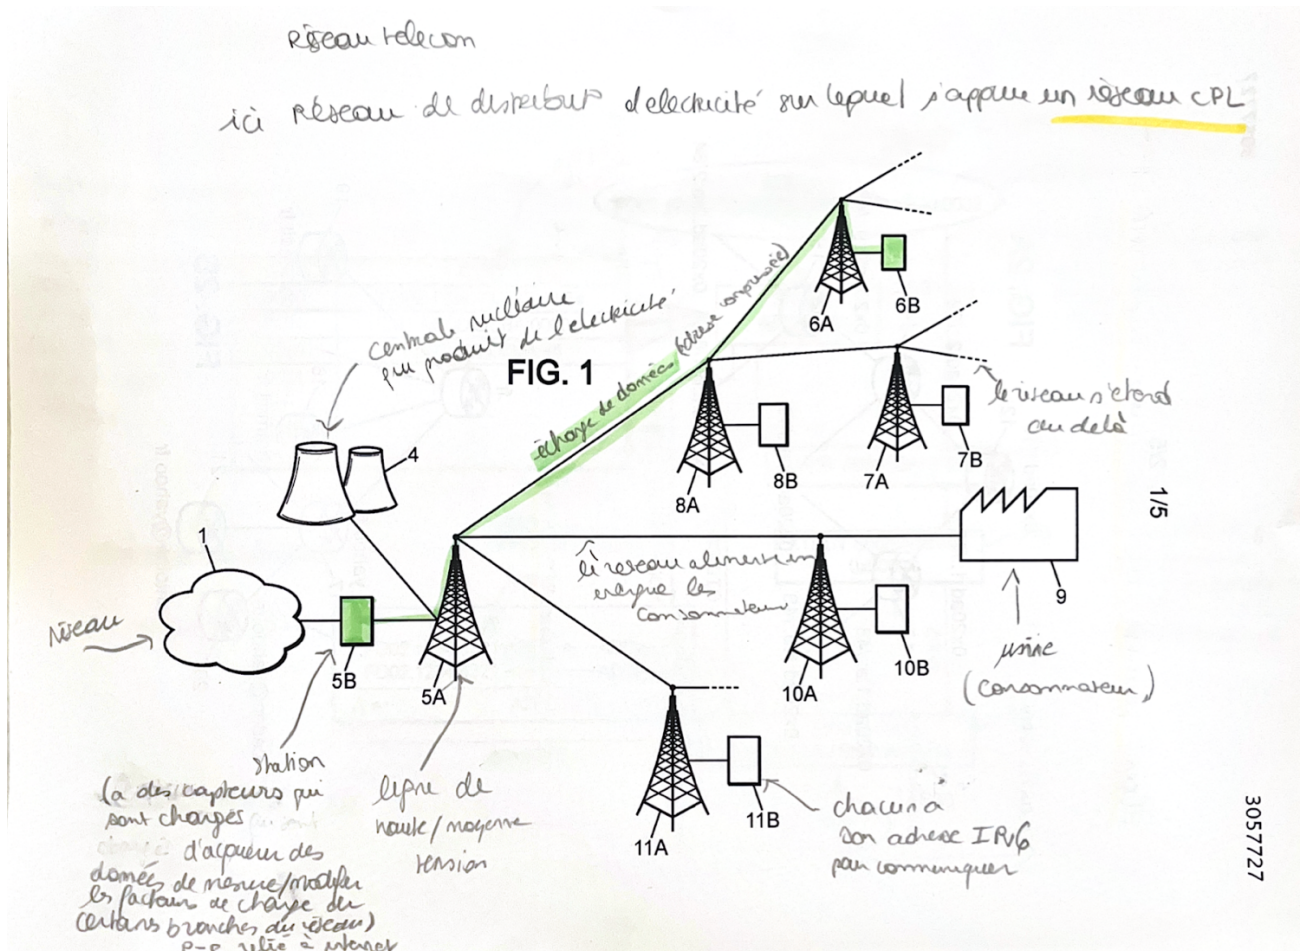 Réseau telecom
ici Réseau de distribut° d'électricité sur lequel s'appuie un réseau CPL
centrale nucléaire
qui produit de l'électricité
FIG. 1
échange de données (adresse compressée)
6A
6B
le réseau s'étend
au delà
7A
7B
8A
8B
4
1
1/5
le réseau alimente en
énergie les
consommateurs
9
usine
(consommateur)
réseau
5B
5A
10A
10B
station
(a des capteurs qui
sont chargés
d'acquérir des
données de mesure/modifier
les facteurs de charge de
certains branches du réseau)
relié à internet
ligne de
haute/moyenne
tension
11A
11B
chacun a
son adresse IPv6
pour communiquer
3057727